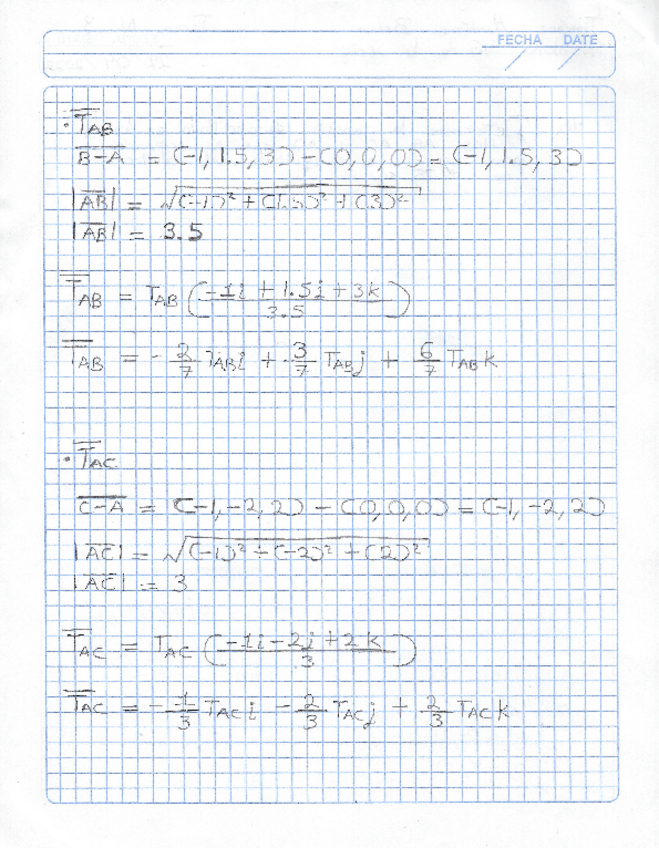 FECHA DATE
• T̅AB
B-A = (-1, 1.5, 3) - (0, 0, 0) = (-1, 1.5, 3)
|AB| = √(-1)² + (1.5)² + (3)²
|AB| = 3.5
T̅AB = TAB (-1i + 1.5j + 3k / 3.5)
T̅AB = - 2/7 TAB i + 3/7 TAB j + 6/7 TAB k
• T̅AC
C-A = (-1, -2, 2) - (0, 0, 0) = (-1, -2, 2)
|AC| = √(-1)² + (-2)² + (2)²
|AC| = 3
T̅AC = TAC (-1i - 2j + 2k / 3)
T̅AC = - 1/3 TAC i - 2/3 TAC j + 2/3 TAC k